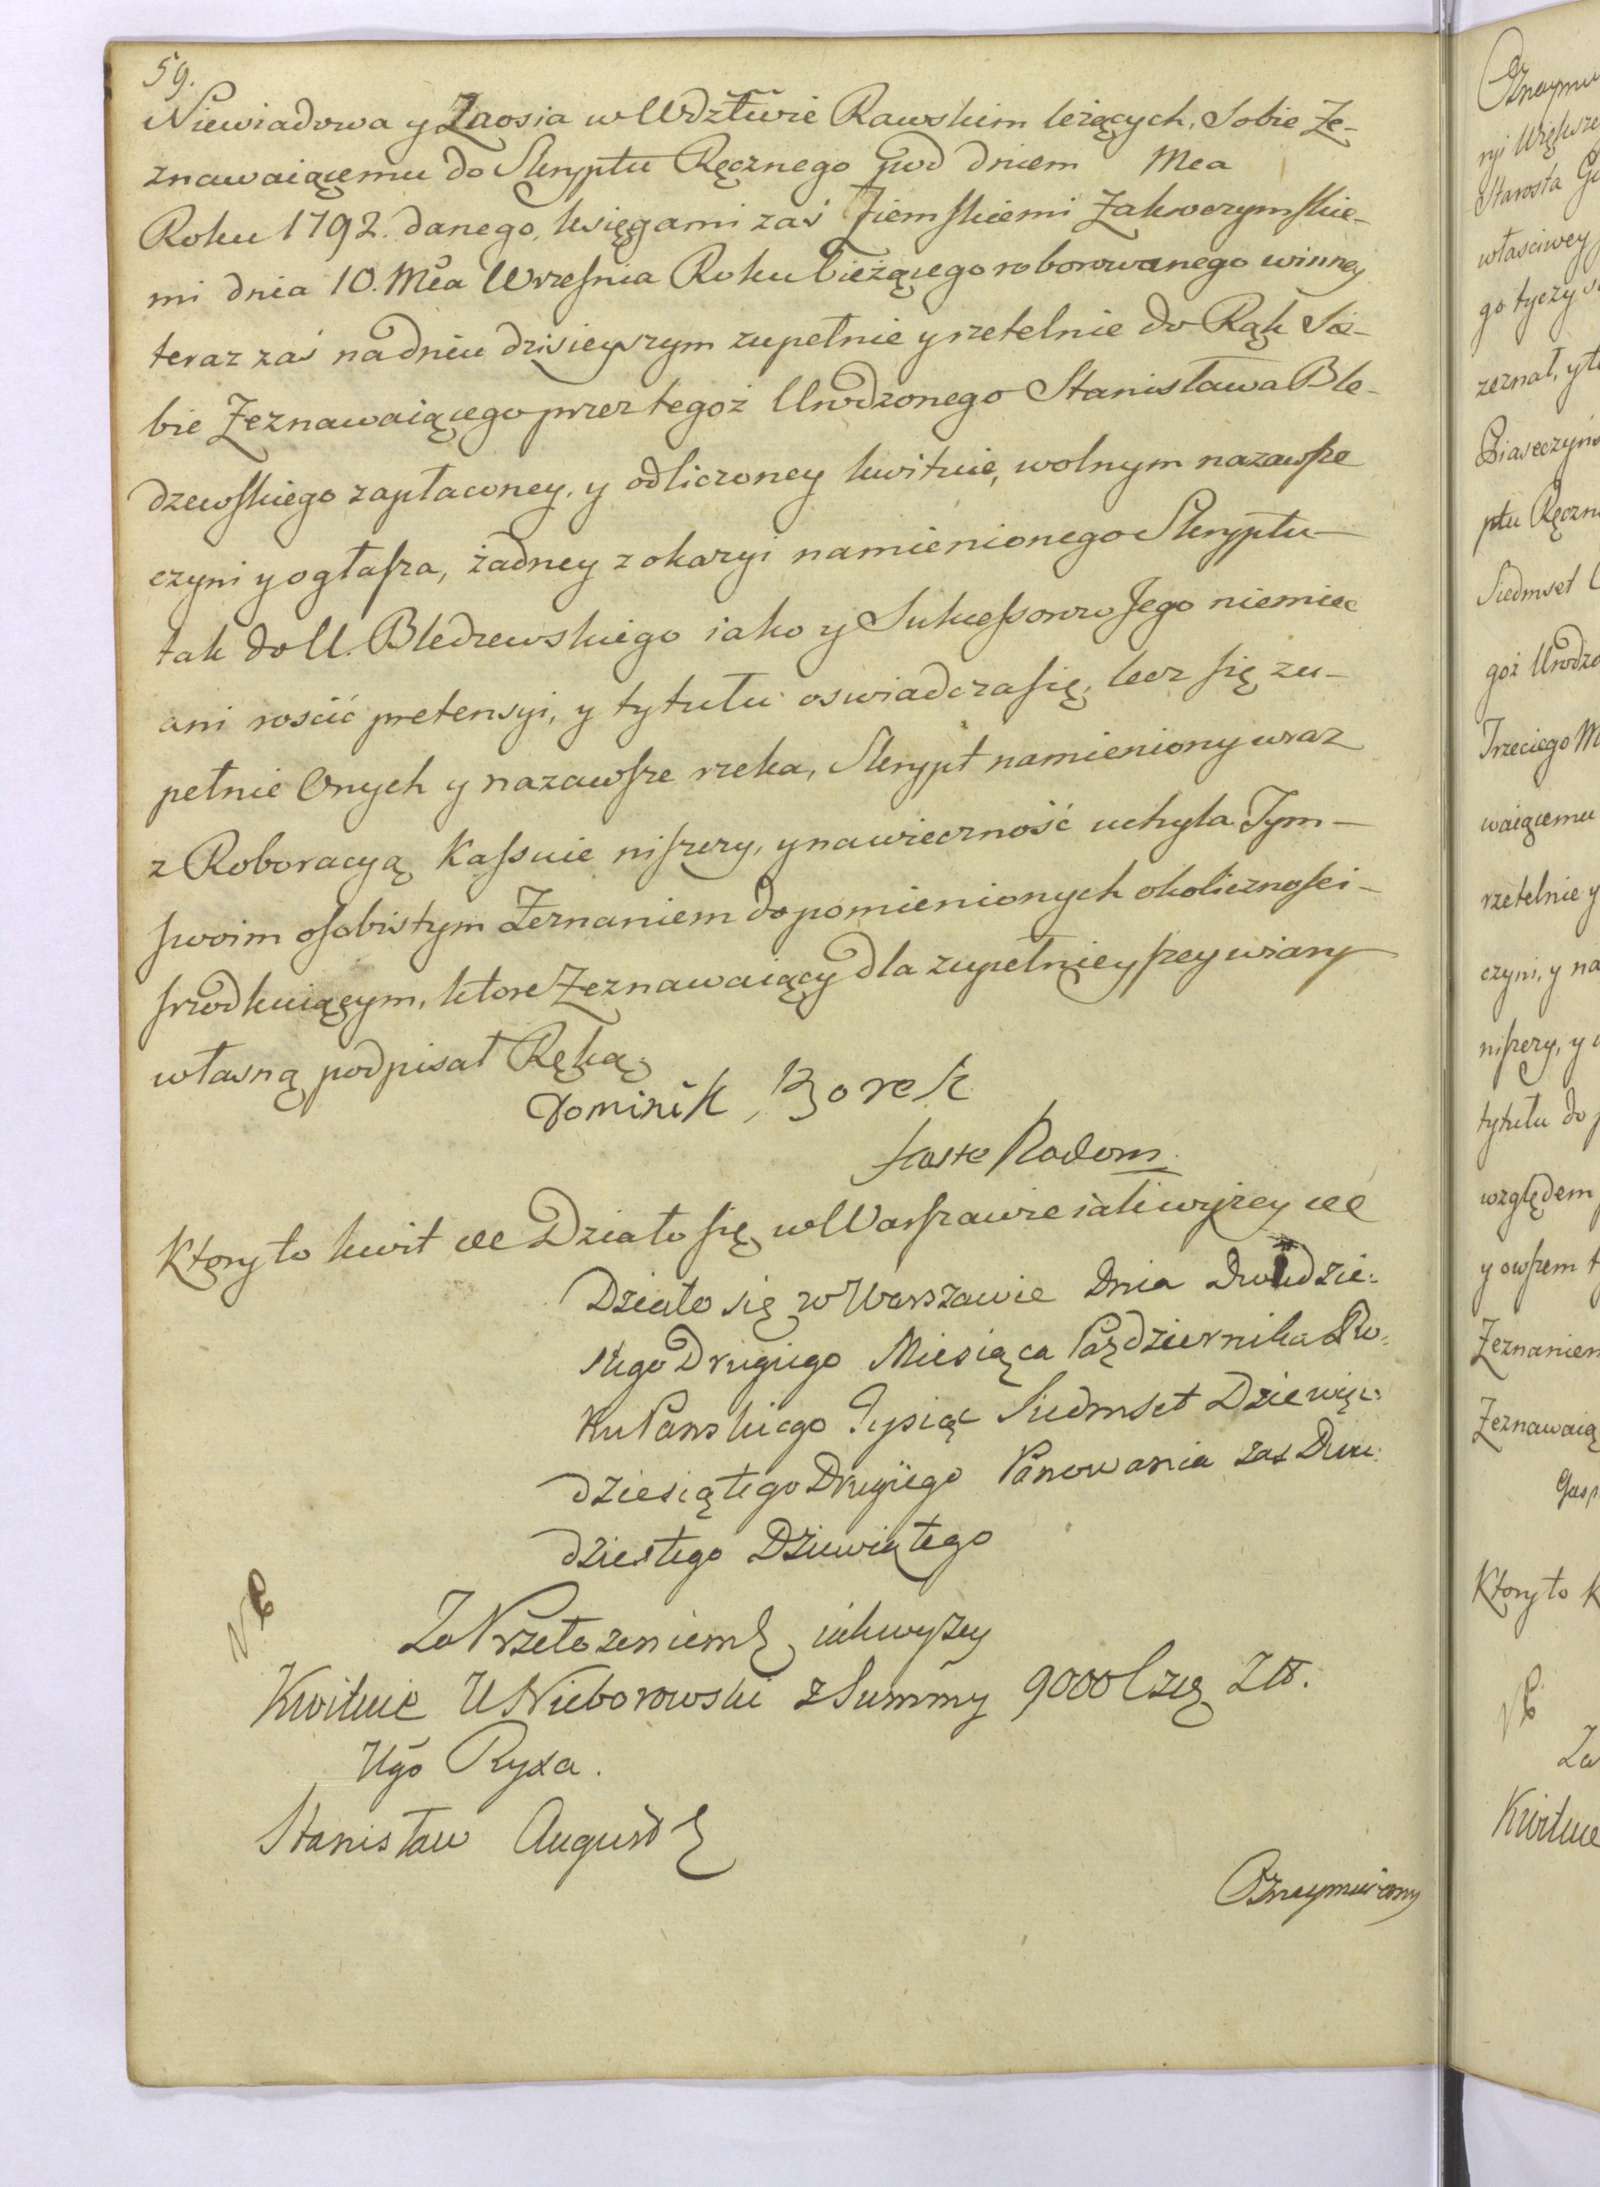 59.
Niewiadowa y Zaosia w Wdztwie Rawskim leżących, Sobie Ze-
znawaiącemu do Skryptu Ręcznego pod dniem Mca
Roku 1792. danego, księgami zaś Ziemskiemi Zakroczymskie-
mi dnia 10. Mca Wrzesnia Roku bieżącego roborowanego winney
teraz zaś na dniu dzisieyszym zupełnie y rzetelnie do Rąk Sie-
bie Zeznawaiącego przez tegoż Urodzonego Stanisława Ble-
dzewskiego zapłaconey, y odliczoney kwituie, wolnym nazawsze
czyni y ogłasza, żadney z okazyi namienionego Skryptu
tak do U. Bledzewskiego iako y Sukcessorow Jego niemiec
ani roscić pretensyi, y tytułu oswiadcza się, lecz się zu-
pełnie Onych y nazawsze rzeka, Skrypt namieniony wraz
z Roboracyą Kassuie niszczy, y na wieczność uchyla Tym
swoim osobistym Zeznaniem do pomienionych okoliczności
srzodkuiącym, ktore Zeznawaiący dla zupełnieyszey wiary
własną podpisał Ręką,
Dominik Borek
Kaszt Radom
Ktory to kwit etc Działo się w Warszawie iak wyżey etc
Działo się w Warszawie Dnia Dwudzie:
stego Drugiego Miesiąca Października Ro:
ku Pańskiego Tysiąc Siedmset Dziewięć:
dziesiątego Drugiego Panowania zas Dwu:
dziestego Dziewiątego
Za Przełożeniem iak wyżey
Kwituie U Nieborowski z Summy 9000 Czę Zł.
Ugo Ryxa.
Stanisław August
Oznaymuiemy